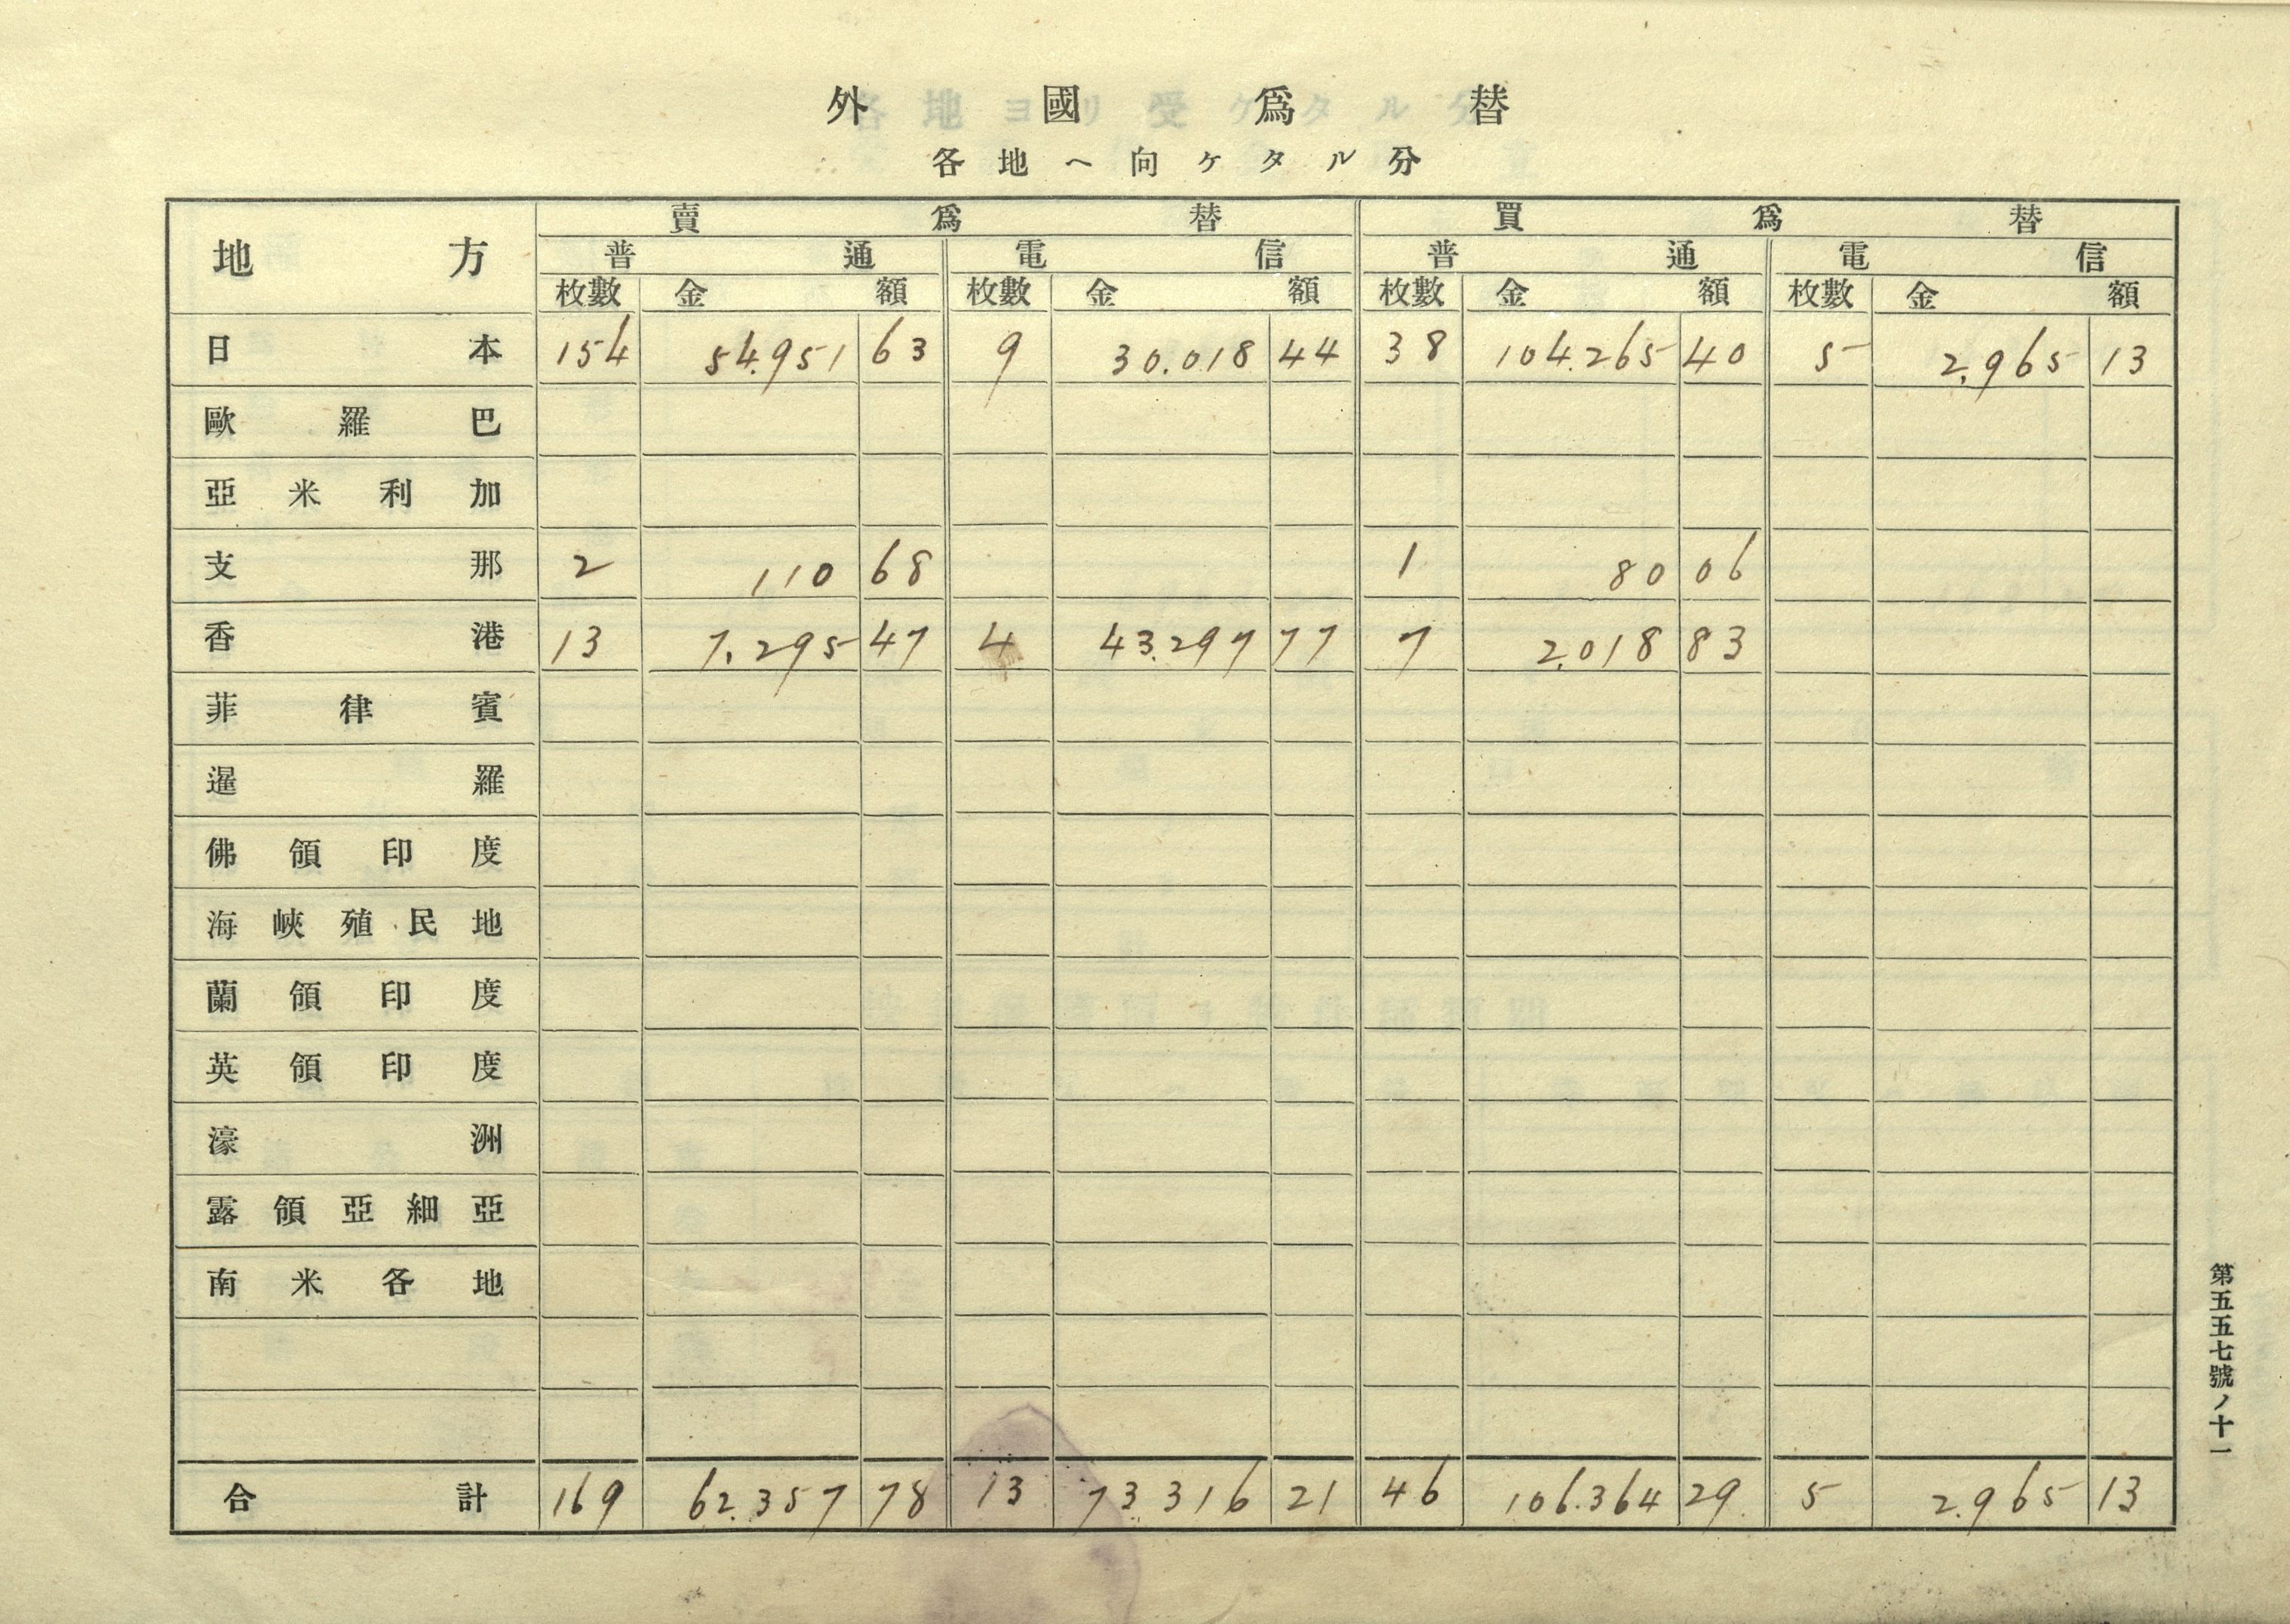 外國爲替
各地へ向ケタル分
地方 賣爲替 買爲替
普通 電信 普通 電信
枚數 金額 枚數 金額 枚數 金額 枚數 金額
日本 154 54.951 63 9 30.018 44 38 104.265 40 5 2.965 13
歐羅巴
亞米利加
支那 2 110 68 1 80 06
香港 13 7.295 47 4 43.297 77 7 2.018 83
菲律賓
暹羅
佛領印度
海峽殖民地
蘭領印度
英領印度
濠洲
露領亞細亞
南米各地
合計 169 62.357 78 13 73 316 21 46 106.364 29 5 2.965 13
第五五七號ノ十一